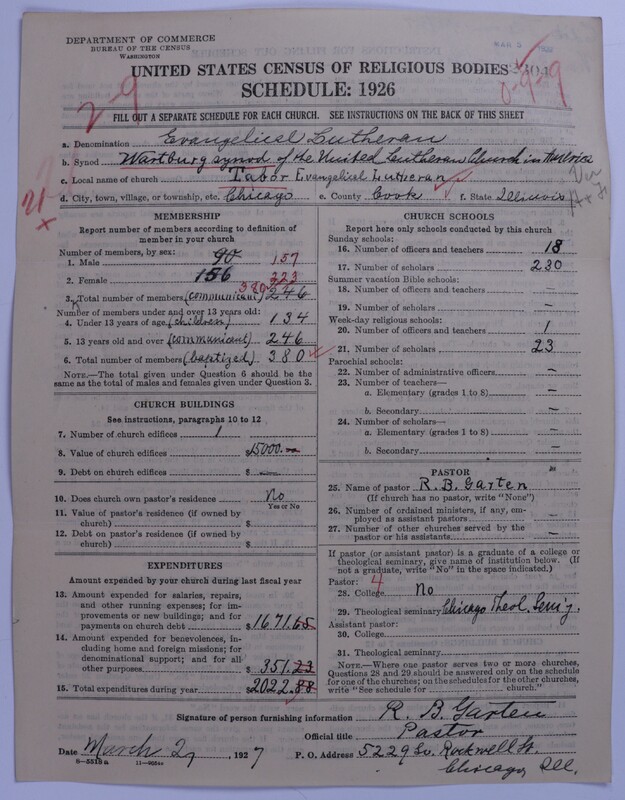 DEPARTMENT OF COMMERCE
BUREAU OF THE CENSUS
WASHINGTON
UNITED STATES CENSUS OF RELIGIOUS BODIES
SCHEDULE: 1926
2-9
0-9-9
FILL OUT A SEPARATE SCHEDULE FOR EACH CHURCH. SEE INSTRUCTIONS ON THE BACK OF THIS SHEET
a. Denomination Evangelical Lutheran
b. Synod Wartburg synod of the United Lutheran Church in America
c. Local name of church Tabor Evangelical Lutheran
d. City, town, village, or township, etc. Chicago e. County Cook f. State Illinois
MEMBERSHIP
Report number of members according to definition of member in your church
Number of members, by sex:
1. Male 90 157
2. Female 156 223
380
3. Total number of members (communicant) 246
Number of members under and over 13 years old:
4. Under 13 years of age (children) 134
5. 13 years old and over (communicant) 246
6. Total number of members (baptized) 380
NOTE.—The total given under Question 6 should be the same as the total of males and females given under Question 3.
CHURCH BUILDINGS
See instructions, paragraphs 10 to 12
7. Number of church edifices 1
8. Value of church edifices $15000.
9. Debt on church edifices $ —
10. Does church own pastor's residence No
Yes or No
11. Value of pastor's residence (if owned by church) $
12. Debt on pastor's residence (if owned by church) $
EXPENDITURES
Amount expended by your church during last fiscal year
13. Amount expended for salaries, repairs, and other running expenses; for improvements or new buildings; and for payments on church debt $1671.65
14. Amount expended for benevolences, including home and foreign missions; for denominational support; and for all other purposes $351.23
15. Total expenditures during year $2022.88
CHURCH SCHOOLS
Report here only schools conducted by this church
Sunday schools:
16. Number of officers and teachers 18
17. Number of scholars 230
Summer vacation Bible schools:
18. Number of officers and teachers —
19. Number of scholars —
Week-day religious schools:
20. Number of officers and teachers 1
21. Number of scholars 23
Parochial schools:
22. Number of administrative officers —
23. Number of teachers—
a. Elementary (grades 1 to 8) —
b. Secondary —
24. Number of scholars—
a. Elementary (grades 1 to 8) —
b. Secondary —
PASTOR
25. Name of pastor R. B. Garten
(If church has no pastor, write "None")
26. Number of ordained ministers, if any, employed as assistant pastors —
27. Number of other churches served by the pastor or his assistants —
If pastor (or assistant pastor) is a graduate of a college or theological seminary, give name of institution below. (If not a graduate, write "No" in the space indicated.)
Pastor: 4
28. College No
29. Theological seminary Chicago Theol. Sem'y.
Assistant pastor:
30. College
31. Theological seminary
NOTE.—Where one pastor serves two or more churches, Questions 28 and 29 should be answered only on the schedule for one of the churches; on the schedules for the other churches, write "See schedule for church."
Signature of person furnishing information R. B. Garten
Official title Pastor
Date March 2, 1927 P. O. Address 5229 So. Rockwell St.
Chicago, Ill.
8—5518a